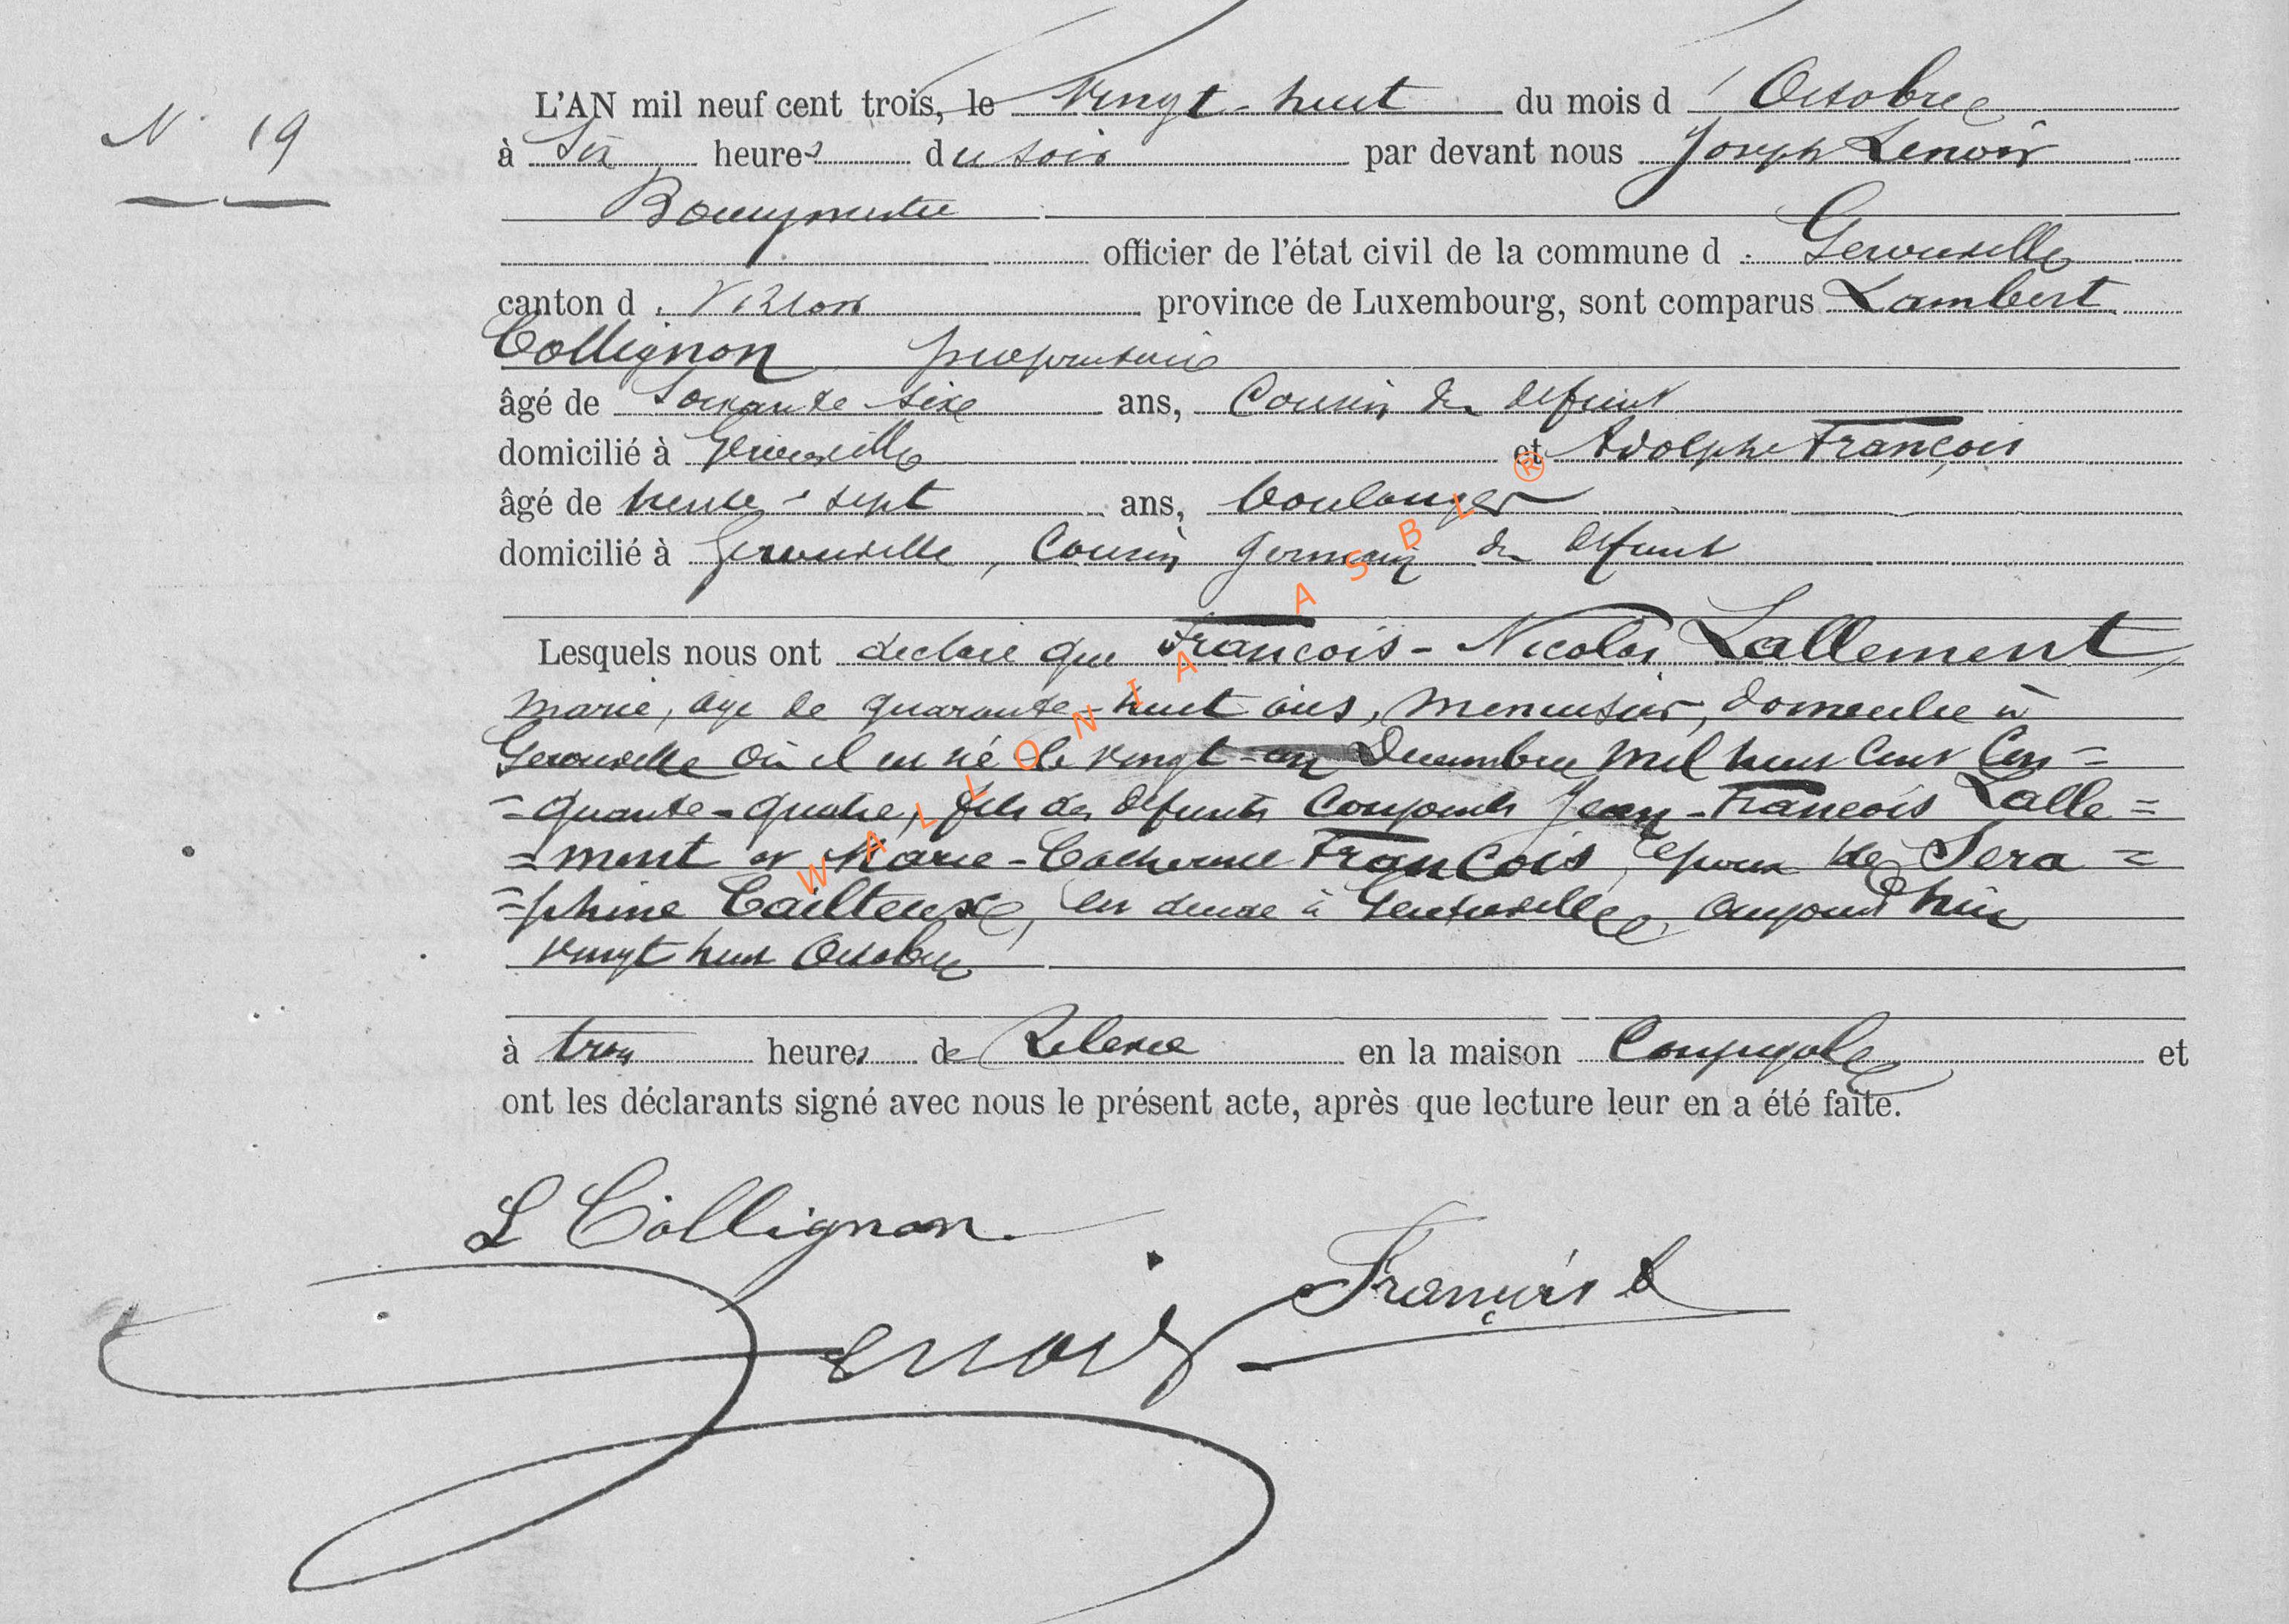 N° 19
L'AN mil neuf cent trois, le vingt-huit du mois d'Octobre
à six heures du soir par devant nous Joseph Lenoir
Bourgmestre
officier de l'état civil de la commune d. Gérouville
canton d. Virton province de Luxembourg, sont comparus Lambert
Collignon, propriétaire
âgé de soixante sixe ans, Cousin du defunt
domicilié à Gérouville et Adolphe François
âgé de trente-sept ans, boulanger
domicilié à Gérouville, Cousin Germain du defunt
Lesquels nous ont declaré que François-Nicolas Lallement,
marié, âgé de quarante-huit ans, menuisier, domicilié à
Gérouville où il est né le vingt-un Decembre mil huit cent cin=
=quante-quatre, fils des defunts Conjoints Jean-François Lalle=
=ment et Marie-Catherine François, époux de Sera=
=phine Tailteuxe, est decedé à Gérouville, aujourd'hui
vingt huit Octobre
à trois heures de relevée en la maison Conjugale et
ont les déclarants signé avec nous le présent acte, après que lecture leur en a été faite.
L Collignon
François A
Lenoir
WALLONIA ASBL ®